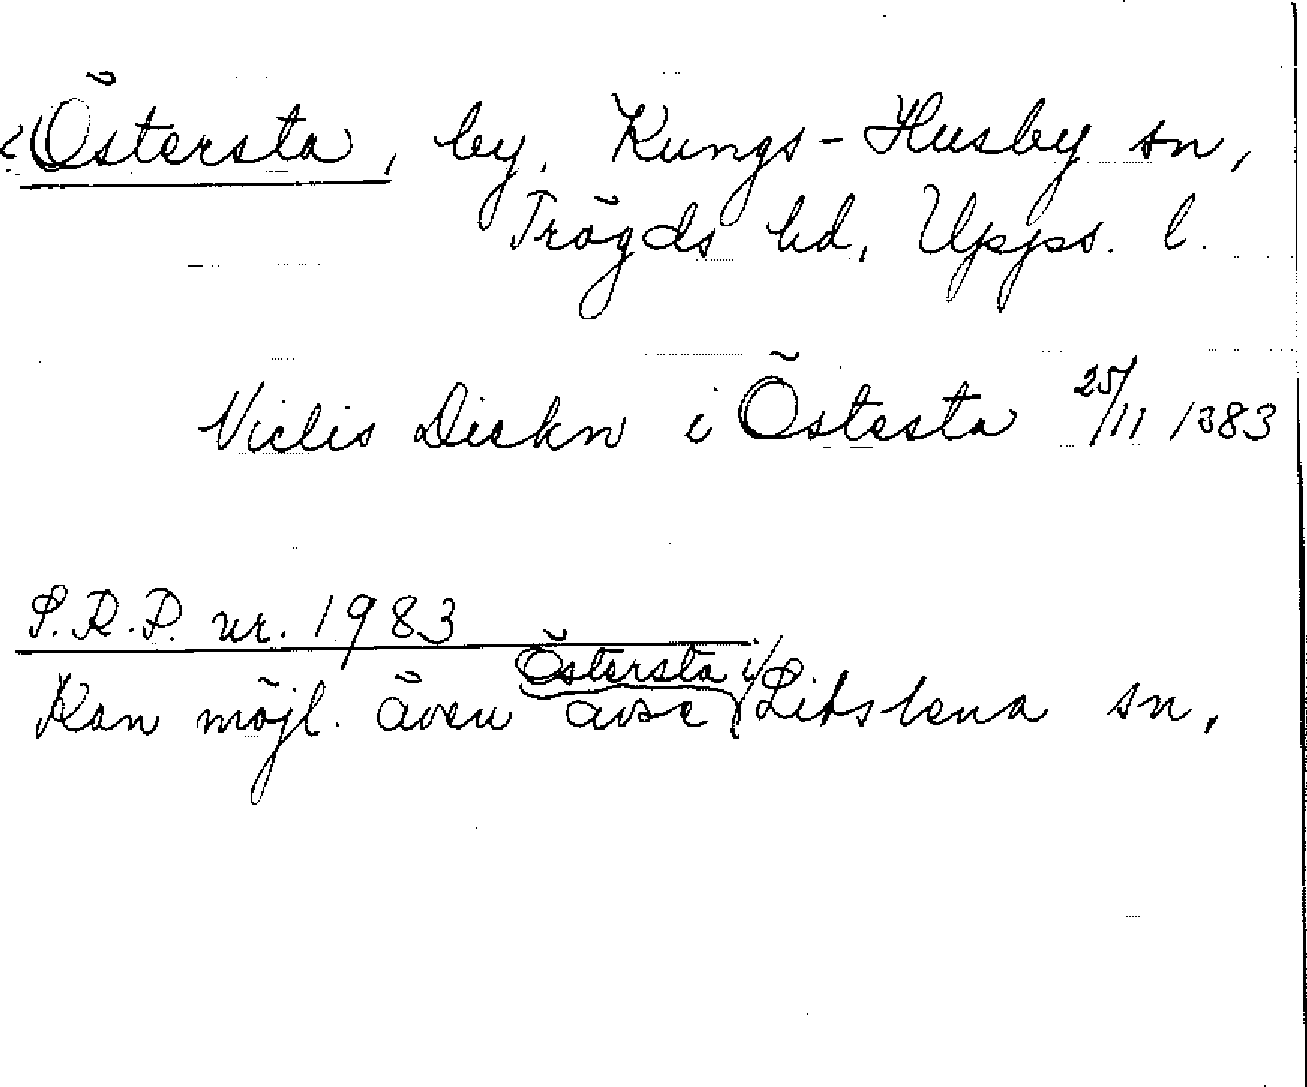 Östersta, by, Kungs-Husby sn,
Trögds hd, Upps. l.
Niclis Diekn i Östesta 25/11 1383
S.R.P. nr. 1983
Kan möjl. även avse Östersta i Litslena sn,